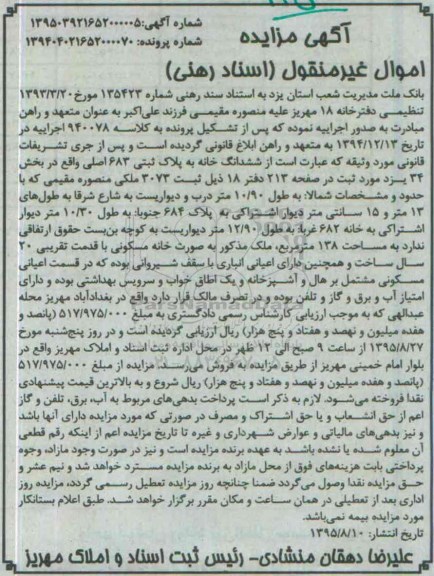 شماره آگهی:139503921652000005
شماره پرونده: 139404021652000070
آگهی مزایده
اموال غیرمنقول (اسناد رهنی)
بانک ملت مدیریت شعب استان یزد به استناد سند رهنی شماره 135423 مورخ1393/3/20
تنظیمی دفترخانه 18 مهریز علیه منصوره مقیمی فرزند علی‌اکبر به عنوان متعهد و راهن
مبادرت به صدور اجراییه نموده که پس از تشکیل پرونده به کلاسه 940078 اجراییه در
تاریخ 1394/12/13 به متعهد و راهن ابلاغ قانونی گردیده است و پس از جری تشریفات
قانونی مورد وثیقه که عبارت است از ششدانگ خانه به پلاک ثبتی 683 اصلی واقع در بخش
34 یزد مورد ثبت در صفحه 213 دفتر 18 ذیل ثبت 3073 ملکی منصوره مقیمی که با
حدود و مشخصات شمالا: به طول 10/90 متر درب و دیواریست به شارع شرقا به طول‌های
13 متر و 15 سانتی متر دیوار اشتراکی به پلاک 684 جنوبا: به طول 10/30 متر دیوار
اشتراکی به خانه 682 غربا: به طول 12/90 متر دیواریست به کوچه بن‌بست حقوق ارتفاقی
ندارد به مساحت 138 مترمربع، ملک مذکور به صورت خانه مسکونی با قدمت تقریبی 20
سال ساخت و همچنین دارای اعیانی انباری با سقف شیروانی بوده که در قسمت اعیانی
مسکونی مشتمل بر هال و آشپزخانه و یک اطاق خواب و سرویس بهداشتی بوده و دارای
امتیاز آب و برق و گاز و تلفن بوده و در تصرف مالک قرار دارد واقع در بغدادآباد مهریز محله
عبدالهی که به موجب ارزیابی کارشناس رسمی دادگستری به مبلغ 517/975/000 (پانصد و
هفده میلیون و نهصد و هفتاد و پنج هزار) ریال ارزیابی گردیده است و در روز پنج‌شنبه مورخ
1395/8/27 از ساعت 9 صبح الی 12 ظهر در محل اداره ثبت اسناد و املاک مهریز واقع در
بلوار امام خمینی مهریز از طریق مزایده به فروش می‌رسد. مزایده از مبلغ 517/975/000
(پانصد و هفده میلیون و نهصد و هفتاد و پنج هزار) ریال شروع و به بالاترین قیمت پیشنهادی
نقدا فروخته می‌شود. لازم به ذکر است پرداخت بدهی‌های مربوط به آب، برق، تلفن و گاز
اعم از حق انشعاب و یا حق اشتراک و مصرف در صورتی که مورد مزایده دارای آنها باشد
و نیز بدهی‌های مالیاتی و عوارض شهرداری و غیره تا تاریخ مزایده اعم از اینکه رقم قطعی
آن معلوم شده یا نشده باشد به عهده برنده مزایده است و نیز در صورت وجود مازاد، وجوه
پرداختی بابت هزینه‌های فوق از محل مازاد به برنده مزایده مسترد خواهد شد و نیم عشر و
حق مزایده نقدا وصول می‌گردد ضمنا چنانچه روز مزایده تعطیل رسمی گردد، مزایده روز
اداری بعد از تعطیلی در همان ساعت و مکان مقرر برگزار خواهد شد. طبق اعلام بستانکار
مورد مزایده بیمه نمی‌باشد.
تاریخ انتشار: 1395/8/10
علیرضا دهقان منشادی- رئیس ثبت اسناد و املاک مهریز